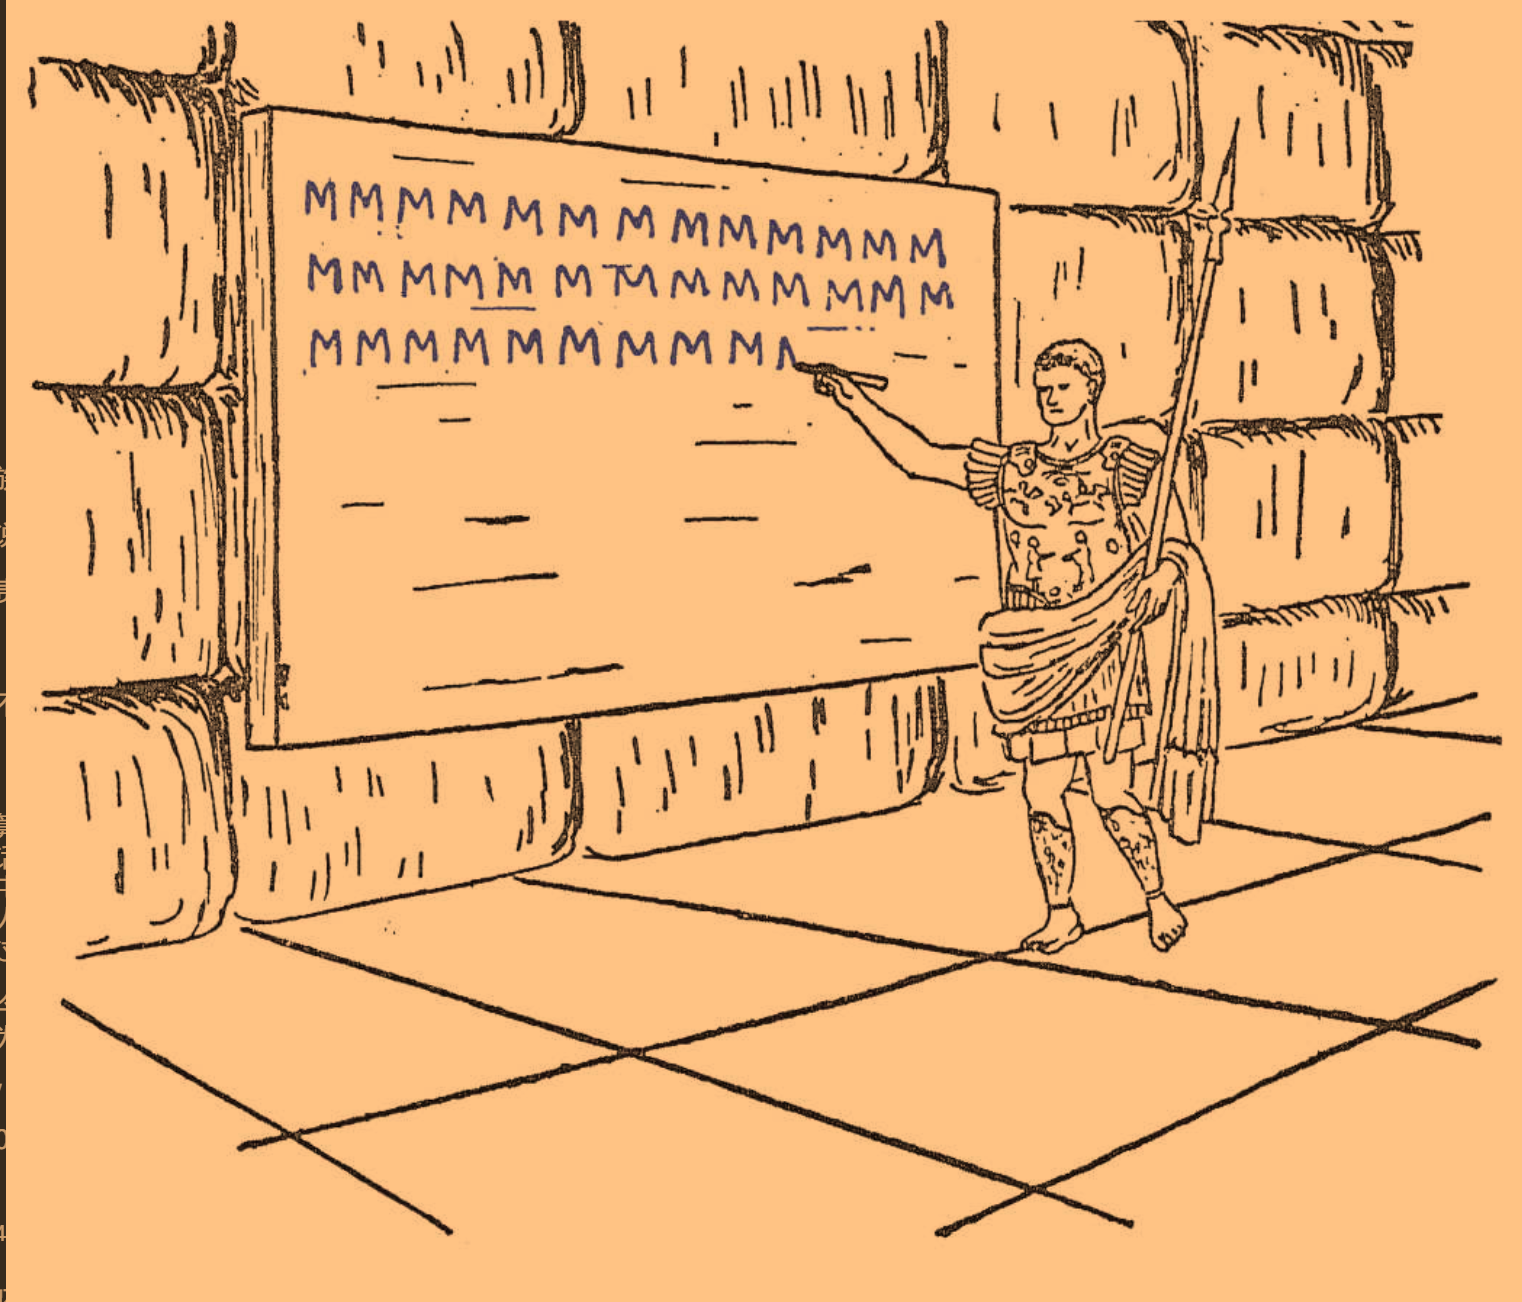 MMMMMMMMMMMMM
MMMMMMMMMMMMM
MMMMMMMMM